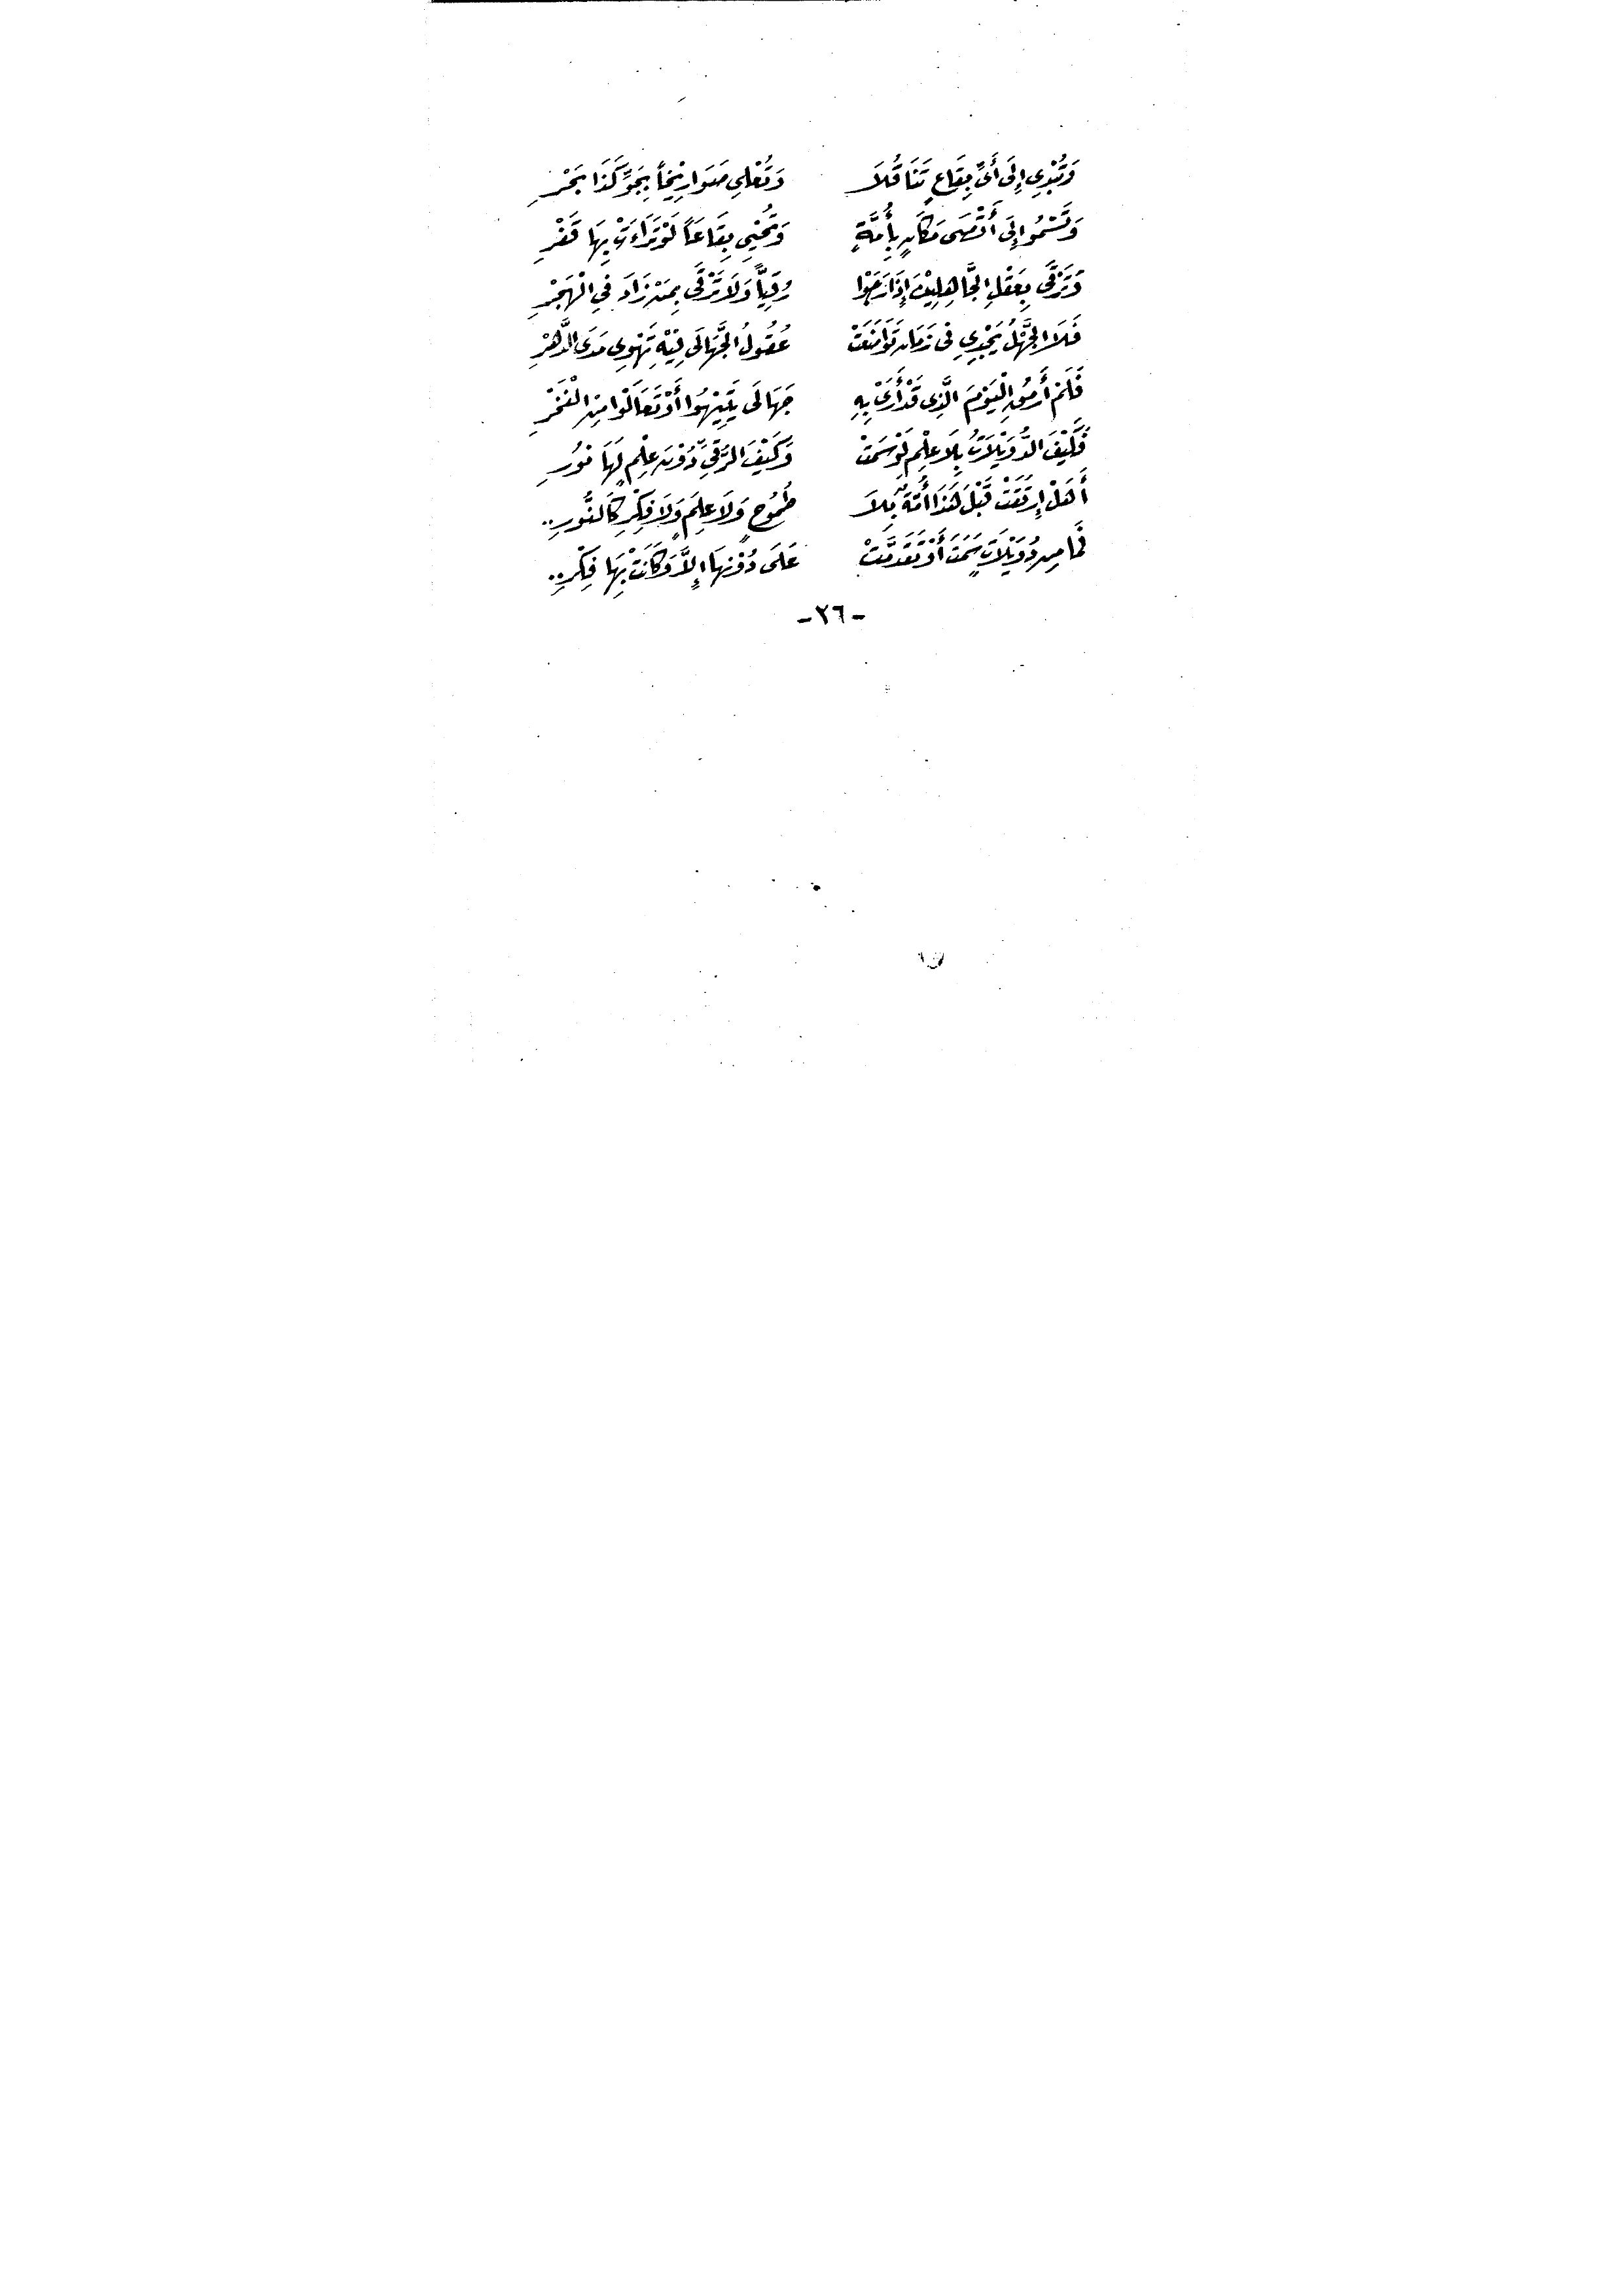 وَتُبْدِي إِلَى أَيِّ بِقَاعٍ تَنَاقُلاَ وَتُعْلِي صَوَارِيْخاً بِجَوٍّ كَذَا بَحْرِ
وَتَسْمُوا إِلَى أَقْصَى مَكَانٍ بِأُمَّةٍ وَتُحْيِي بِقَاعَاً لَوْ تَرَاءَتْ بِهَا قَفْرِ
وَتَرْقَى بِعَقْلِ الجَّاهِلِيْنَ إِذَا رَضَوْا رُقِيَّاً وَلاَ تَرْقَى بِمَنْ زَادَ فِي الْهَجْرِ
فَلاَ الجَّهْلُ يُجْدِي فِى زَمَانٍ تَوَامَضَتْ عُقُولُ الجَّهَالَى فِيْهِ تَهْوِي مَدَى الدَّهْرِ
فَلَمْ أَرْمُقِ الْيَوْمَ الَّذِى قَدْ أَرَىْ بِهِ جَهَالَى يَتِيْهُوا أَوْ تَعَالَوْا مِنَ الْفَخْرِ
فَكَيْفَ الدُّوَيْلاَتُ بِلاَ عِلْمٍ لَوْ سَمَتْ وَكَيْفَ الرُّقِيَّ دُوْنَ عِلْمٍ لَهَا نُوْرِ
أَهَلْ إِرْتَقَتْ قَبْلَ هَذَا أُمَّةٌ بِلاَ طُمُوْحٍ وَلاَ عِلْمٍ وَلاَ فِكْرٍ كَالنُّوْرِ..
فَمَا مِنْ دُوَيْلاَتٍ سَمَتْ أَوْ تَقَدَّمَتْ عَلَى دُوْنِهَا إِلاَّ وَكَانَتْ بِهَا فِكْرِ..
-٢٦-